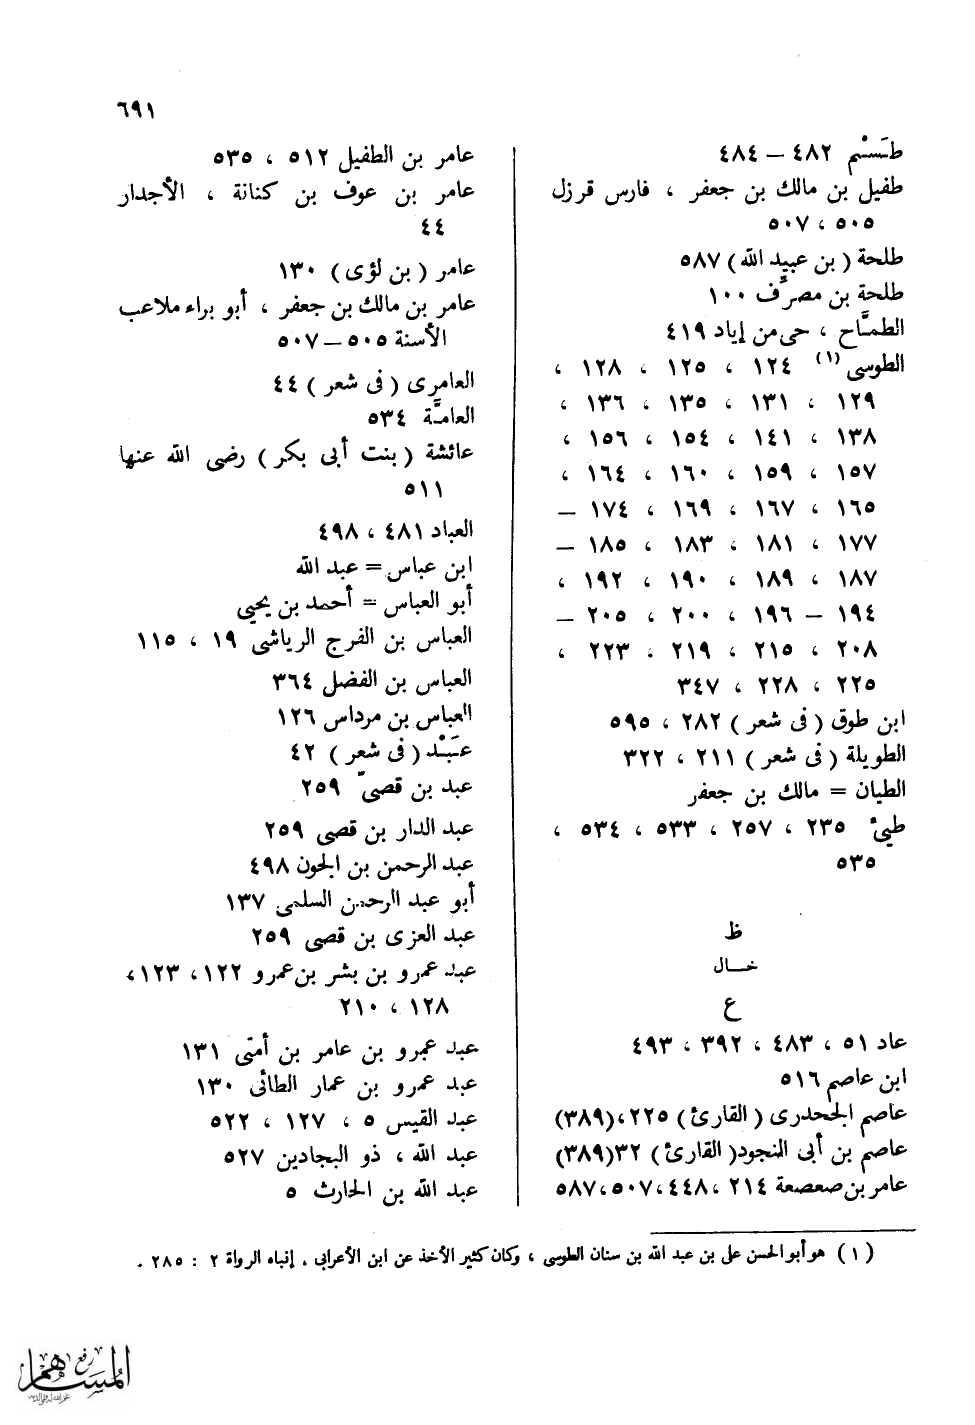 ٦٩١
طَسْم ٤٨٢ – ٤٨٤
طفيل بن مالك بن جعفر ، فارس قرزل
٥٠٥ ، ٥٠٧
طلحة ( بن عبيد الله ) ٥٨٧
طلحة بن مصرِّف ١٠٠
الطمَّاح ، حى من إياد ٤١٩
الطوسى (١) ١٢٤ ، ١٢٥ ، ١٢٨ ،
١٢٩ ، ١٣١ ، ١٣٥ ، ١٣٦ ،
١٣٨ ، ١٤١ ، ١٥٤ ، ١٥٦ ،
١٥٧ ، ١٥٩ ، ١٦٠ ، ١٦٤ ،
١٦٥ ، ١٦٧ ، ١٦٩ ، ١٧٤ –
١٧٧ ، ١٨١ ، ١٨٣ ، ١٨٥ –
١٨٧ ، ١٨٩ ، ١٩٠ ، ١٩٢ ،
١٩٤ – ١٩٦ ، ٢٠٠ ، ٢٠٥ –
٢٠٨ ، ٢١٥ ، ٢١٩ ، ٢٢٣ ،
٢٢٥ ، ٢٢٨ ، ٣٤٧
ابن طوق ( فى شعر ) ٢٨٢ ، ٥٩٥
الطويلة ( فى شعر ) ٢١١ ، ٣٢٢
الطيان = مالك بن جعفر
طيئ ٢٣٥ ، ٢٥٧ ، ٥٣٣ ، ٥٣٤ ،
٥٣٥
ظ
خــال
ع
عاد ٥١ ، ٤٨٣ ، ٣٩٢ ، ٤٩٣
ابن عاصم ٥١٦
عاصم الجحدرى ( القارئ ) ٢٢٥ ،(٣٨٩)
عاصم بن أبى النجود( القارئ ) ٣٢(٣٨٩)
عامر بن صعصعة ٢١٤ ، ٤٤٨ ،٥٠٧ ،٥٨٧
عامر بن الطفيل ٥١٢ ، ٥٣٥
عامر بن عوف بن كنانة ، الأجدار
٤٤
عامر ( بن لؤى ) ١٣٠
عامر بن مالك بن جعفر ، أبو براء ملاعب
الأسنة ٥٠٥ – ٥٠٧
العامرى ( فى شعر ) ٤٤
العامَّة ٥٣٤
عائشة ( بنت أبى بكر ) رضى الله عنها
٥١١
العباد ٤٨١ ، ٤٩٨
ابن عباس = عبد الله
أبو العباس = أحمد بن يحيى
العباس بن الفرج الرياشى ١٩ ، ١١٥
العباس بن الفضل ٣٦٤
العباس بن مرداس ١٢٦
عَبْد ( فى شعر ) ٤٢
عبد بن قصىّ ٢٥٩
عبد الدار بن قصى ٢٥٩
عبد الرحمن بن الجون ٤٩٨
أبو عبد الرحمن السلمى ١٣٧
عبد العزى بن قصى ٢٥٩
عبد عمرو بن بشر بن عمرو ١٢٢ ، ١٢٣ ،
١٢٨ ، ٢١٠
عبد عمرو بن عامر بن أمتى ١٣١
عبد عمرو بن عمار الطائى ١٣٠
عبد القيس ٥ ، ١٢٧ ، ٥٢٢
عبد الله ، ذو البجادين ٥٢٧
عبد الله بن الحارث ٥
( ١ ) هو أبو الحسن على بن عبد الله بن سنان الطوسى ، وكان كثير الأخذ عن ابن الأعرابى . إنباه الرواة ٢ : ٢٨٥ .